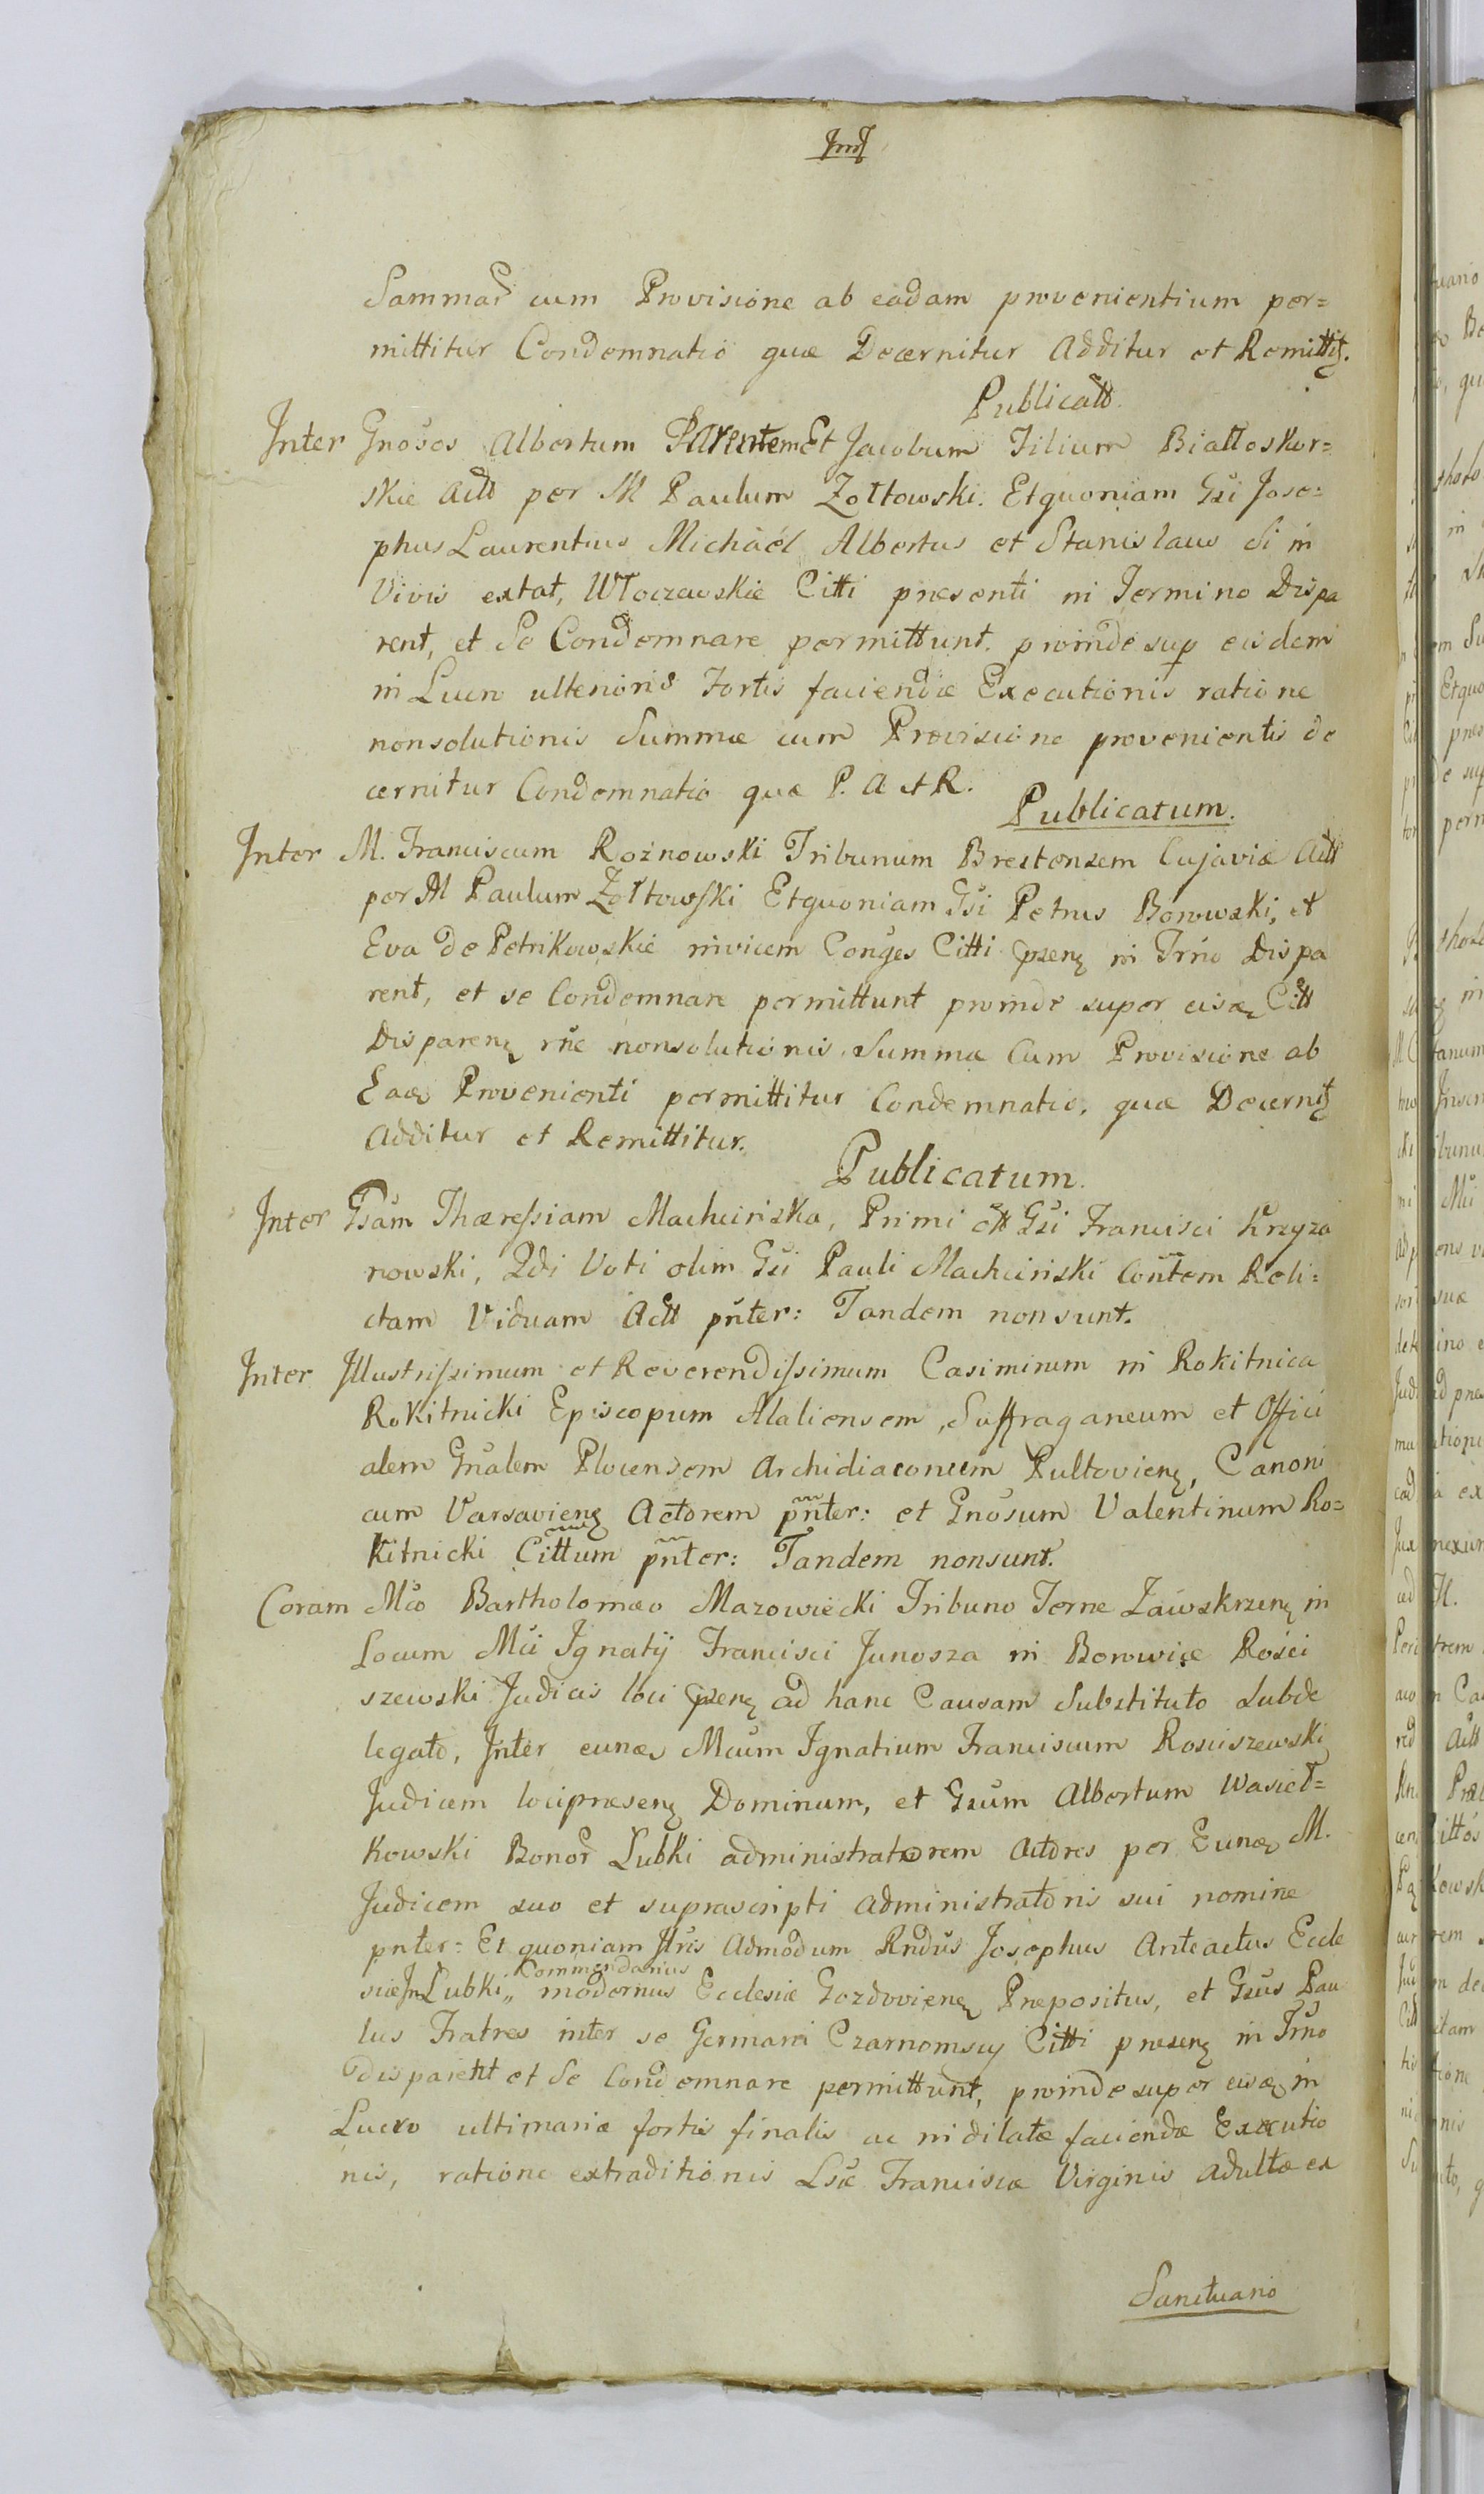 Summar cum Provisione ab eadem provenientium per=
mittitur Condemnatio quæ Decernitur Additur et Remittit.
Publicatt.
Inter Gnosos Albertum Parentem Et Jacobum Filium Białłoskur=
skie Actt per M Paulum Zołtowski. Et quoniam Gsi Jose=
phus Laurentius Michaël Albertus et Stanislaus Si in
Vivis extat, Włoczewskie Citti præsenti in Termino Dispa
rent, et Se Condemnare permittunt. proinde sup eisdem
in Lucro ulterioris Fortis faciendæ Executionis ratione
nonsolutionis Summæ cum Provisione provenientis de
cernitur Condemnatio quæ P. A et R.
Publicatum.
Inter M. Franciscum Rożnowski Tribunum Brestensem Cujaviæ Actt
per M Paulum Zołtowski Et quoniam Gsi Petrus Borowski, et
Eva de Petrikowskie invicem Conges Citti præsen in Trno Dispa
rent, et se Condemnare permittunt proinde super eisdem Citt
Disparen rne nonsolutionis Summæ Cum Provisione ab
Eade Provenienti permittitur Condemnatio, quæ Decernit
Additur et Remittitur.
Publicatum.
Inter Gsam Thæressiam Machcinska, Primi ott Gsi Francisci Krzyza
nowski, 2di Voti olim Gsi Pauli Machcinski Contem Reli=
ctam Viduam Actt pnter: Tandem nonsunt.
Inter Illustrissimum et Reverendissimum Casimirum in Rokitnica
Rokitnicki Episcopum Aaliensem, Suffraganeum et Offici
alem Gnalem Plocensem Archidiaconum Pultovien, Canoni
cum Varsavien Actorem pnter: et Gnosum Valentinum Ro=
kitnicki Cittum pnter: Tandem nonsunt.
Coram Mco Bartholomæo Mazowiecki Tribuno Terræ Zawskrzen in
Locum Mci Ignatij Francisci Junosza in Borowice Rosci
szewski Judicis loci præsen ad hanc Causam Substituto Subde
legato, Inter eunde Mcum Ignatium Franciscum Rosciszewski
Judicem loci præsen Dominum, et Gsum Albertum Wasiet=
kowski Bonor Lubki administratorem Actores per Eunde M.
Judicem suo et suprascripti administratoris sui nomine
pnter: Et quoniam Iltris Admodum Rndus Josephus Anteactus Eccle
Commendarius
siæ In Lubki,, modernus Ecclesiæ Gozdovien Præpositus, et Gsus Pau
lus Fratres inter se Germani Czarnomscy Citti præsen in Trno
disparent et Se Condemnare permittunt, proinde super eisde in
Lucro ultimariæ fortis finalis ac indilatæ faciendæ Executio
nis, ratione extraditionis Lsæ Franciscæ Virginis adultæ ex
Sanctuario